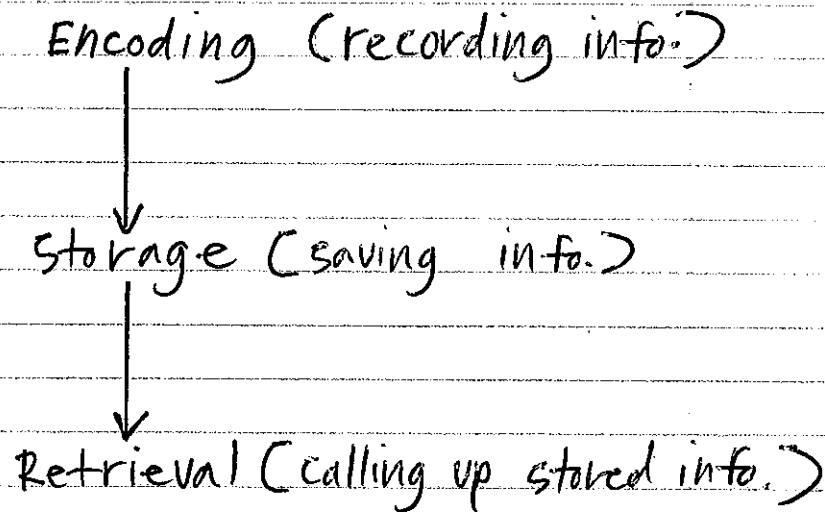 Encoding (recording info.)
Storage (saving info.)
Retrieval (calling up stored info.)